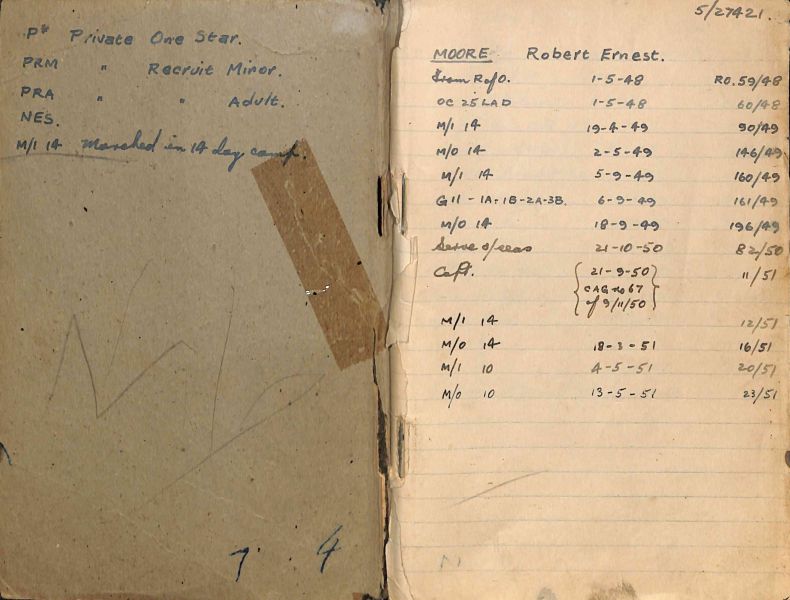 P* Private One Star.
PRM " Recruit Minor.
PRA " " Adult.
NES.
M/I 14 Marched in 14 day camp.
7 4
5/27421.
MOORE Robert Ernest.
from RofO. 1-5-48 RO.59/48
OC 25 LAD 1-5-48 60/48
M/I 14 19-4-49 90/49
M/O 14 2-5-49 146/49
M/I 14 5-9-49 160/49
G11-1A-1B-2A-3B. 6-9-49 161/49
M/O 14 18-9-49 196/49
Serve o/seas 21-10-50 82/50
Capt. 21-9-50 11/51
CAG no 67
of 9/11/50
M/I 14 12/51
M/O 14 18-3-51 16/51
M/I 10 4-5-51 20/51
M/O 10 13-5-51 23/51